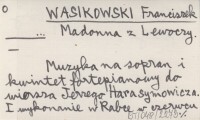 O WASIKOWSKI Franciszek
... Madonna z Lewoczy.
Muzyka na sopran i
kwintet fortepianowy do
wiersza Jerego Harasymowicza.
I wykonanie w Rabce w czerwcu